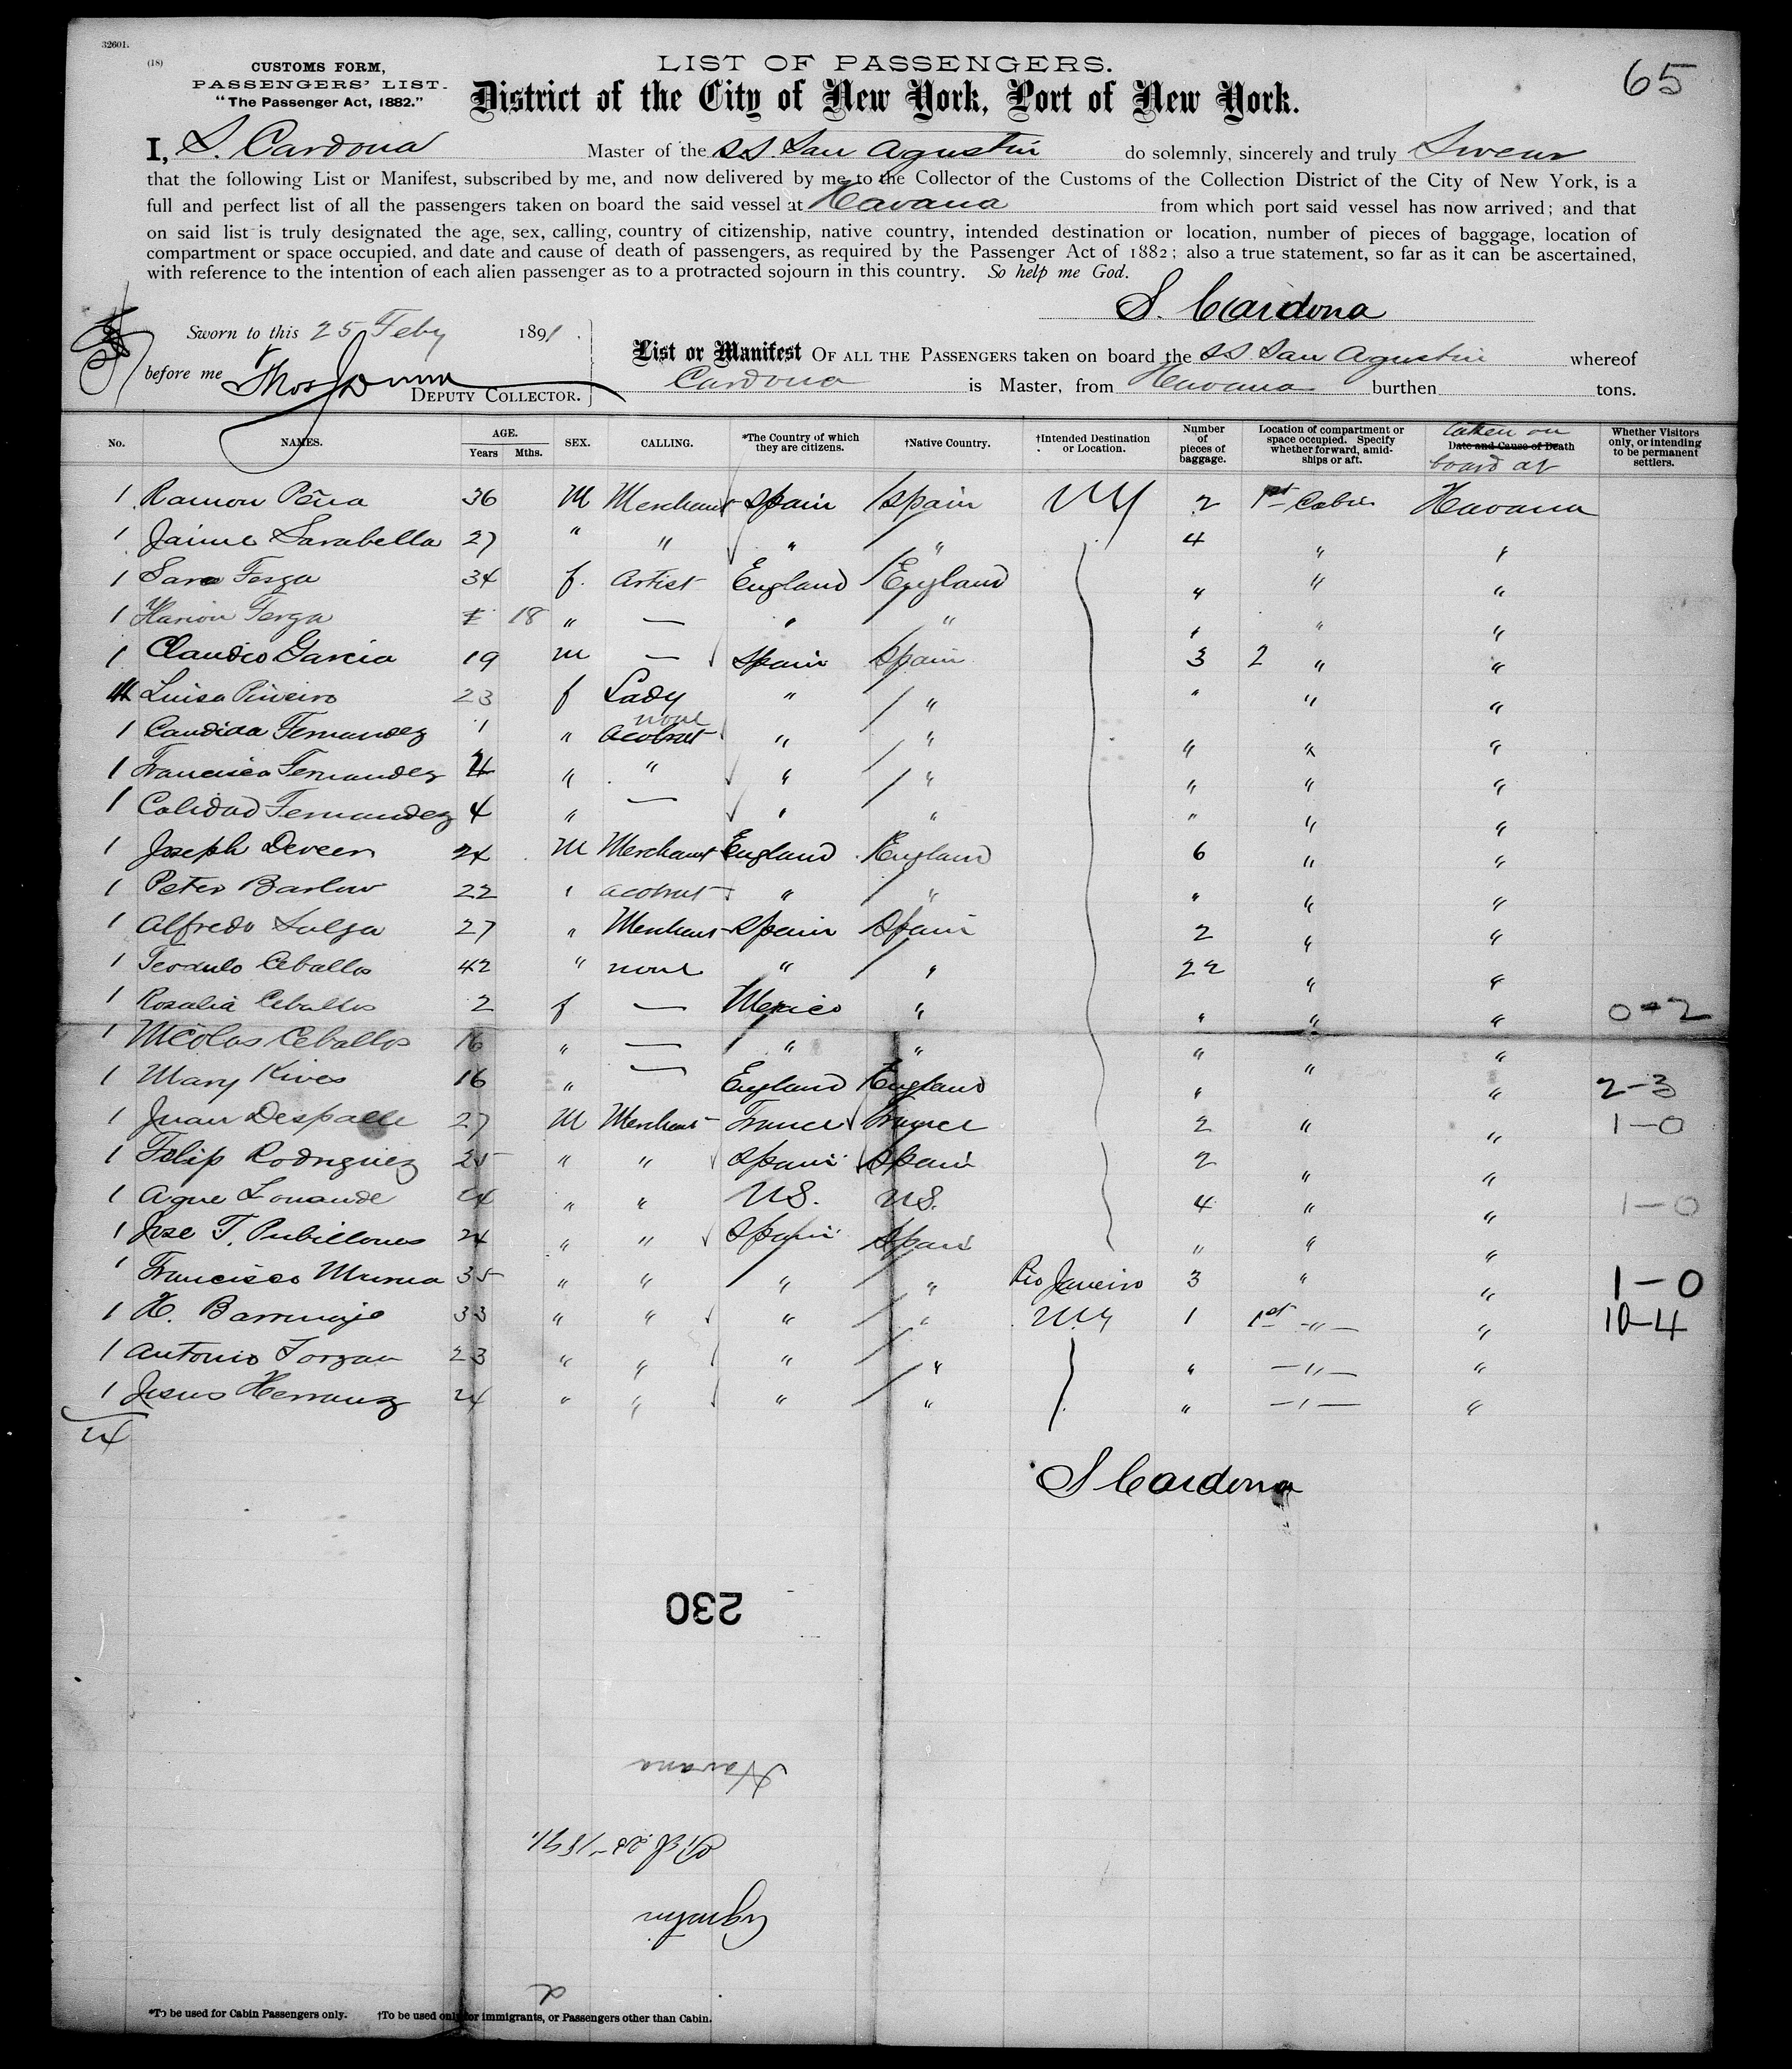 32601.
(18)
CUSTOMS FORM,
PASSENGERS' LIST.
"The Passenger Act, 1882."
LIST OF PASSENGERS.
District of the City of New York, Port of New York.
65
I, S. Cardona Master of the SS. San Agustin do solemnly, sincerely and truly Swear
that the following List or Manifest, subscribed by me, and now delivered by me to the Collector of the Customs of the Collection District of the City of New York, is a
full and perfect list of all the passengers taken on board the said vessel at Havana from which port said vessel has now arrived; and that
on said list is truly designated the age, sex, calling, country of citizenship, native country, intended destination or location, number of pieces of baggage, location of
compartment or space occupied, and date and cause of death of passengers, as required by the Passenger Act of 1882; also a true statement, so far as it can be ascertained,
with reference to the intention of each alien passenger as to a protracted sojourn in this country. So help me God.
S. Cardona
Sworn to this 25 Feby 1891.
before me
DEPUTY COLLECTOR.
List or Manifest OF ALL THE PASSENGERS taken on board the SS. San Agustin whereof
Cardona is Master, from Havana burthen tons.
No. NAMES. AGE. Years Mths. SEX. CALLING. *The Country of which they are citizens. †Native Country. †Intended Destination or Location. Number of pieces of baggage. Location of compartment or space occupied. Specify whether forward, amidships or aft. Date and Cause of Death taken on board at Whether Visitors only, or intending to be permanent settlers.
1 Ramon Peña 36 M Merchant Spain Spain NY 2 1st Cabin Havana
1 Jaime Sarabella 27 " " " " 4 " "
1 Sara Ferga 34 f. Artist England England " " "
1 Ferga 18 " — " " " " "
1 Claudio Garcia 19 M — Spain Spain 3 2 " "
1 Luisa Piñeiro 23 f Lady " " " " "
1 Candida Fernandez 1 " none acobrat " " " " "
1 Francisca Fernandez " " " " " " "
1 Calidad Fernandez 4 " — " " " " "
1 Joseph Deveen 24 M Merchant England England 6 " "
1 Peter Barlow 22 " acobrat " " " " "
1 Alfredo Sulga 27 " Merchant Spain Spain 2 " "
1 Teodulo Ceballos 42 " none " " 22 " "
1 Rosalia Ceballos 2 f — Mexico " " " " 0-2
1 Nicolas Ceballos 16 " — " " " " "
1 Mary Kives 16 " — England England " " " 2-3
1 Juan Despalle 27 M Merchant France France 2 " " 1-0
1 Felip Rodriguez 25 " " Spain Spain 2 " "
1 Agne Lonande 24 " " US. US. 4 " " 1-0
1 Jose T. Pubillones 24 " " Spain Spain " " "
1 Francisco Murua 35 " " " " Rio Janeiro 3 " " 1-0
1 H. Barrunaje 33 " " " " N.Y 1 1st " " 10-4
1 Antonio Torzan 23 " " " " " " "
1 Jesus Herranz 24 " " " " " " "
24
S Cardona
230
Havana
1891.
*To be used for Cabin Passengers only. †To be used only for immigrants, or Passengers other than Cabin.